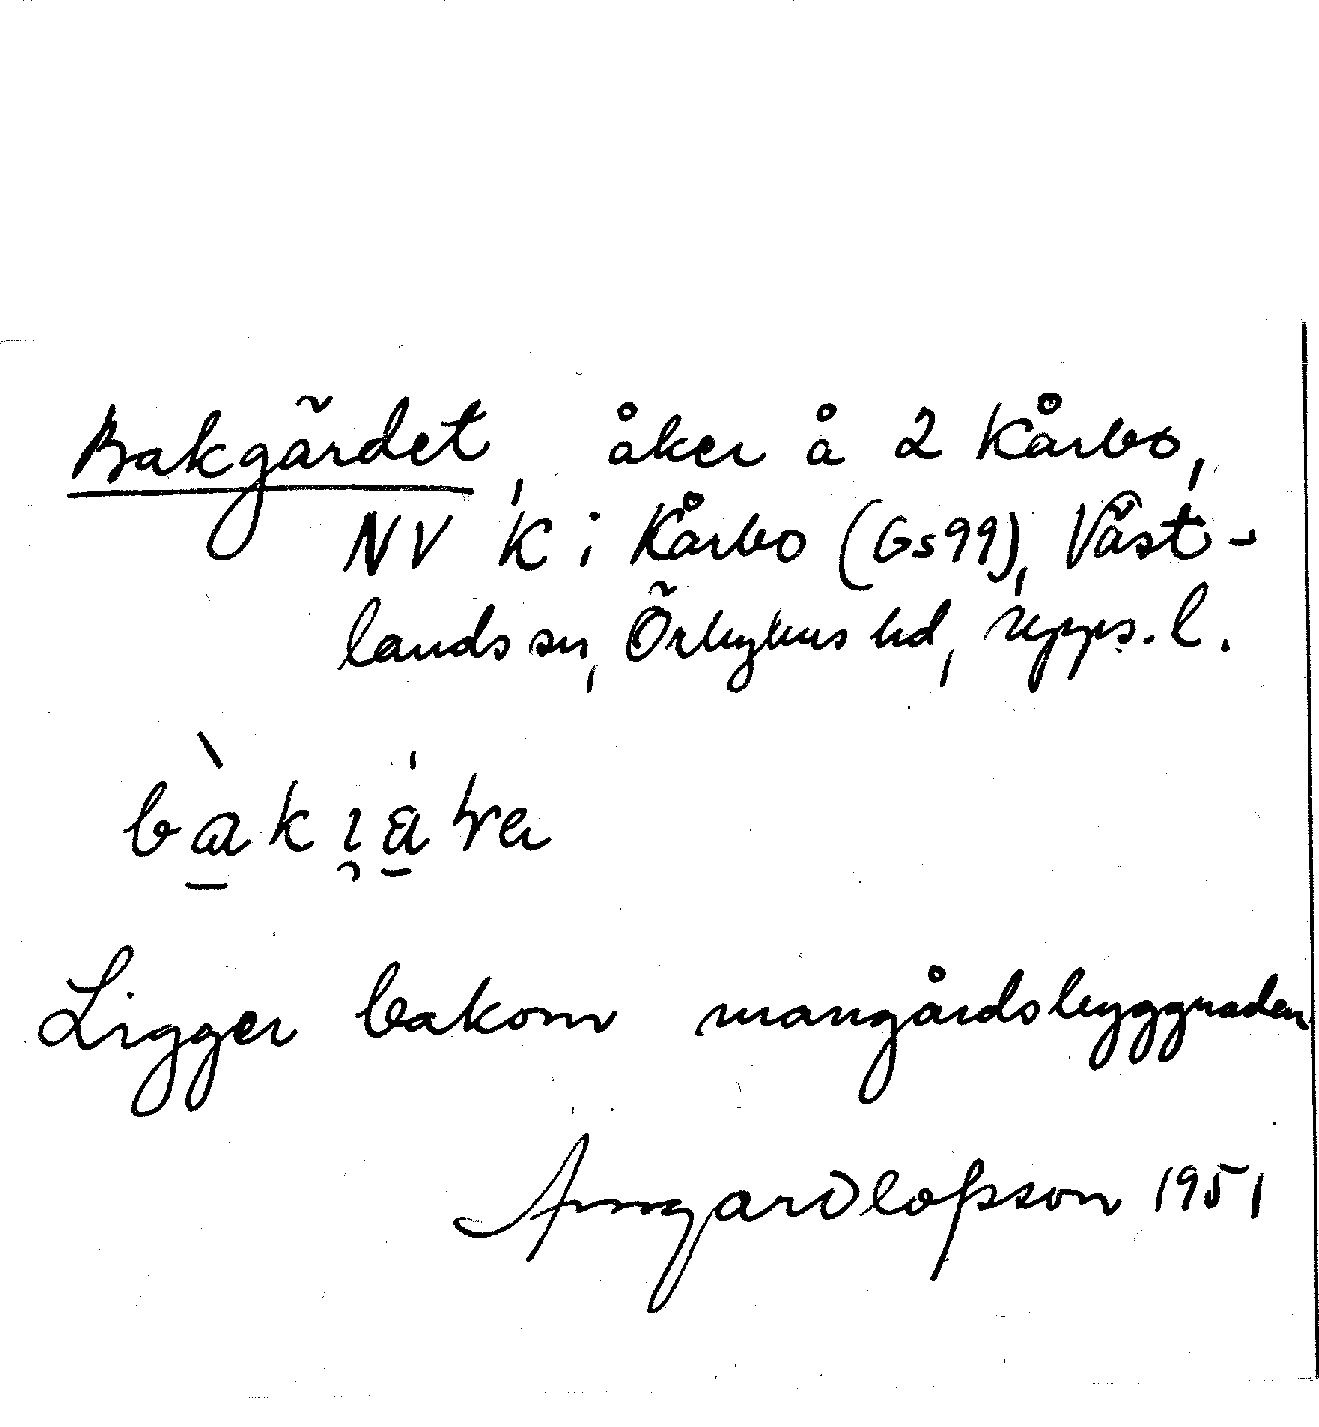 Bakgärdet, åker å 2 Kårbo,
NV K i Kårbo (Gs99), Väst-
lands sn, Örbyhus hd, Upps. l.
Ligger bakom mangårdsbyggnaden
Olofsson 1951